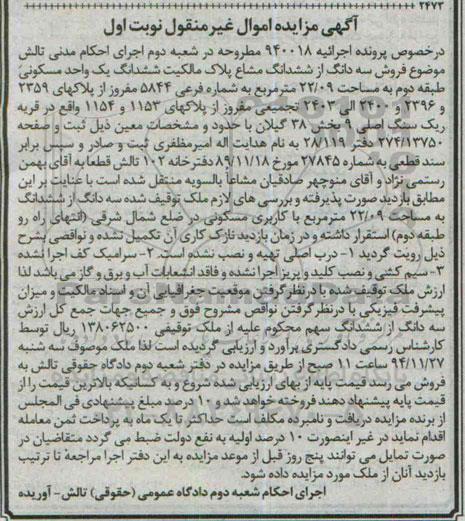 ۲۴۷۳
آگهی مزایده اموال غیر منقول نوبت اول
درخصوص پرونده اجرائیه ۹۴۰۰۱۸ مطروحه در شعبه دوم اجرای احکام مدنی تالش
موضوع فروش سه دانگ از ششدانگ مشاع پلاک مالکیت ششدانگ یک واحد مسکونی
طبقه دوم به مساحت ۲۲/۰۹ مترمربع به شماره فرعی ۵۸۴۴ مفروز از پلاکهای ۲۳۵۹
و ۲۳۹۶ و ۲۴۰۰ الی ۲۴۰۳ تجمیعی مفروز از پلاکهای ۱۱۵۳ و ۱۱۵۴ واقع در قریه
ریک سنگ اصلی از بخش ۳۸ گیلان با حدود و مشخصات معین ذیل ثبت و صفحه
۲۷۴/۱۳۷۵۰ دفتر ۲۸/۱۱۹ به نام هدایت اله امیرمظفری ثبت و صادر و سپس برابر
سند قطعی به شماره ۲۷۸۴۵ مورخ ۸۹/۱۱/۱۸ دفترخانه ۱۰۲ تالش قطعا به آقای بهمن
رستمی نژاد و آقای منوچهر صادقیان مشاعاً بالسویه منتقل شده است با عنایت بر این
مطابق بازدید صورت پذیرفته و بررسی های لازم ملک توقیف شده سه دانگ از ششدانگ
به مساحت ۲۲/۰۹ مترمربع با کاربری مسکونی در ضلع شمال شرقی (انتهای راه رو
طبقه دوم) استقرار داشته و در زمان بازدید نازک کاری آن تکمیل نشده و نواقصی بشرح
ذیل رویت گردید ۱- درب اصلی تهیه و نصب نشده است. ۲- سرامیک کف اجرا نشده
۳- سیم کشی و نصب کلید و پریز اجرا نشده و فاقد انشعابات آب و برق و گاز می باشد لذا
ارزش ملک توقیف شده با در نظر گرفتن موقعیت جغرافیایی آن و اسناد مالکیت و میزان
پیشرفت فیزیکی با درنظر گرفتن نواقص مشروح فوق و جمیع جهات جمع کل ارزش
سه دانگ از ششدانگ سهم محکوم علیه از ملک توقیفی ۱۳۸۰۶۲۵۰۰ ریال توسط
کارشناس رسمی دادگستری برآورد و ارزیابی گردیده است لذا ملک موصوف سه شنبه
۹۴/۱۱/۲۷ ساعت ۱۱ صبح از طریق مزایده در دفتر شعبه دوم دادگاه حقوقی تالش به
فروش می رسد قیمت پایه از بهای ارزیابی شده شروع و به کسانیکه بالاترین قیمت را از
قیمت پایه پیشنهاد دهند فروخته خواهد شد و ۱۰ درصد مبلغ پیشنهادی فی المجلس
از برنده مزایده دریافت و نامبرده مکلف است حداکثر تا یک ماه به پرداخت ثمن معامله
اقدام نماید در غیر اینصورت ۱۰ درصد اولیه به نفع دولت ضبط می گردد متقاضیان در
صورت تمایل می توانند پنج روز قبل از موعد مزایده به این دفتر اجرا مراجعه تا ترتیب
بازدید آنان از ملک مورد مزایده داده شود.
اجرای احکام شعبه دوم دادگاه عمومی (حقوقی) تالش- آوریده